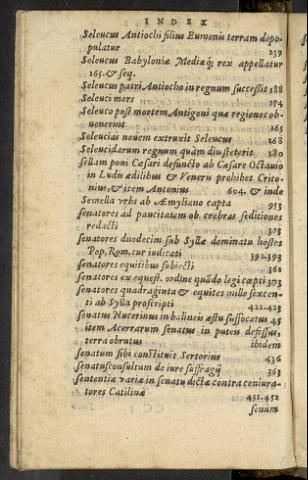 INDEX
Seleucus Antiochi filius Eumenis terram depo-
pulatur 239
Seleucus Babyloniæ Mediæq́; rex appellatur
165. & seq.
Seleucus patri Antiocho in regnum successit 188
Seleuci mors 174
Seleuco post mortem Antigoni quæ regiones ob-
uenerint 165
Seleucias nouem extruxit Seleucus 168
Seleucidarum regnum quàm diu steterit 180
sellam poni Cæsari defuncto ab Cæsare Octauio
in Ludis ædilibus & Veneris prohibet Crito-
nius, & item Antonius 604. & inde
Semella vrbs ab Æmyliano capta 953
senatores ad paucitatem ob crebras seditiones
redacti 373
senatores duodecim sub Syllæ dominatu hostes
Pop. Rom. cur iudicati 392.393
senatores equitibus subiecti 362
senatores ex equest. ordine quãdo legi cœpti 373
senatores quadraginta & equites mille sexcen-
ti ab Sylla proscripti 422.423
senatus Nucerinus in balineis æstu suffocatus 45
item Acerrarum senatus in puteis defossus,
terra obrutus ibidem
senatum sibi constituit Sertorius 436
senatusconsultum de iure suffragij 363
sententiæ variæ in senatu dictæ contra coniura-
tores Catilinæ 451.452
senum